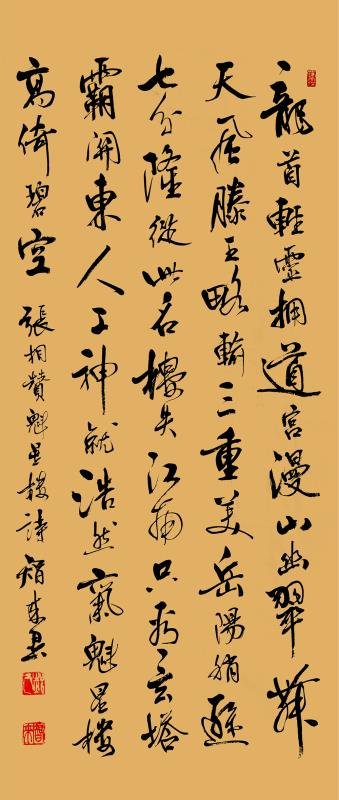 龍首輕靈拥道宫漫山幽翠舞
天風滕王略輸三重美岳陽稍遜
七分隆從此名樓失江南只爲玄塔
霸關東人工神就浩然氣魁星樓
高倚碧空 張相贊魁星樓詩 智東書